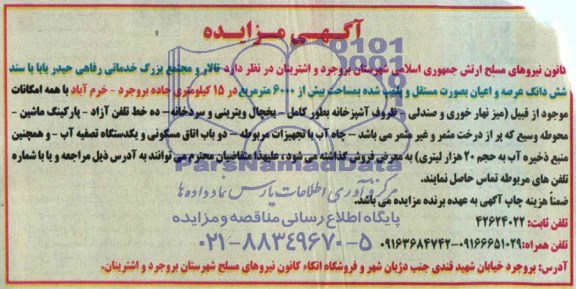 آگهی مزایده
کانون نیروهای مسلح ارتش جمهوری اسلامی شهرستان بروجرد و اشترینان در نظر دارد تالار و مجتمع بزرگ خدماتی رفاهی حیدر بابا با سند
شش دانگ عرصه و اعیان بصورت مستقل و پلمپ شده بمساحت بیش از ۶۰۰۰ مترمربع در ۱۵ کیلومتری جاده بروجرد - خرم آباد با همه امکانات
موجود از قبیل (میز نهار خوری و صندلی - ظروف آشپزخانه بطور کامل - یخچال ویترینی و سردخانه - ده خط تلفن آزاد - پارکینگ ماشین -
محوطه وسیع که پر از درخت مثمر و غیر مثمر می باشد - چاه آب با تجهیزات مربوطه - دو باب اتاق مسکونی و یکدستگاه تصفیه آب - و همچنین
منبع ذخیره آب به حجم ۲۰ هزار لیتری) به معرض فروش گذاشته می شود، علیهذا متقاضیان محترم می توانند به آدرس ذیل مراجعه و یا با شماره
تلفن های مربوطه تماس حاصل نمایند.
ضمناً هزینه چاپ آگهی به عهده برنده مزایده می باشد.
تلفن ثابت: ۴۲۶۲۴۰۲۲
تلفن همراه: ۰۹۱۶۶۶۵۱۰۲۹-۰۹۱۶۳۶۸۴۷۴۲
آدرس: بروجرد خیابان شهید قندی جنب دژبان شهر و فروشگاه اتکاء کانون نیروهای مسلح شهرستان بروجرد و اشترینان.
ParsNamadData
مرکز فرآوری اطلاعات پارس نماد داده ها
پایگاه اطلاع رسانی مناقصه و مزایده
۰۲۱-۸۸۳۴۹۶۷۰-۵